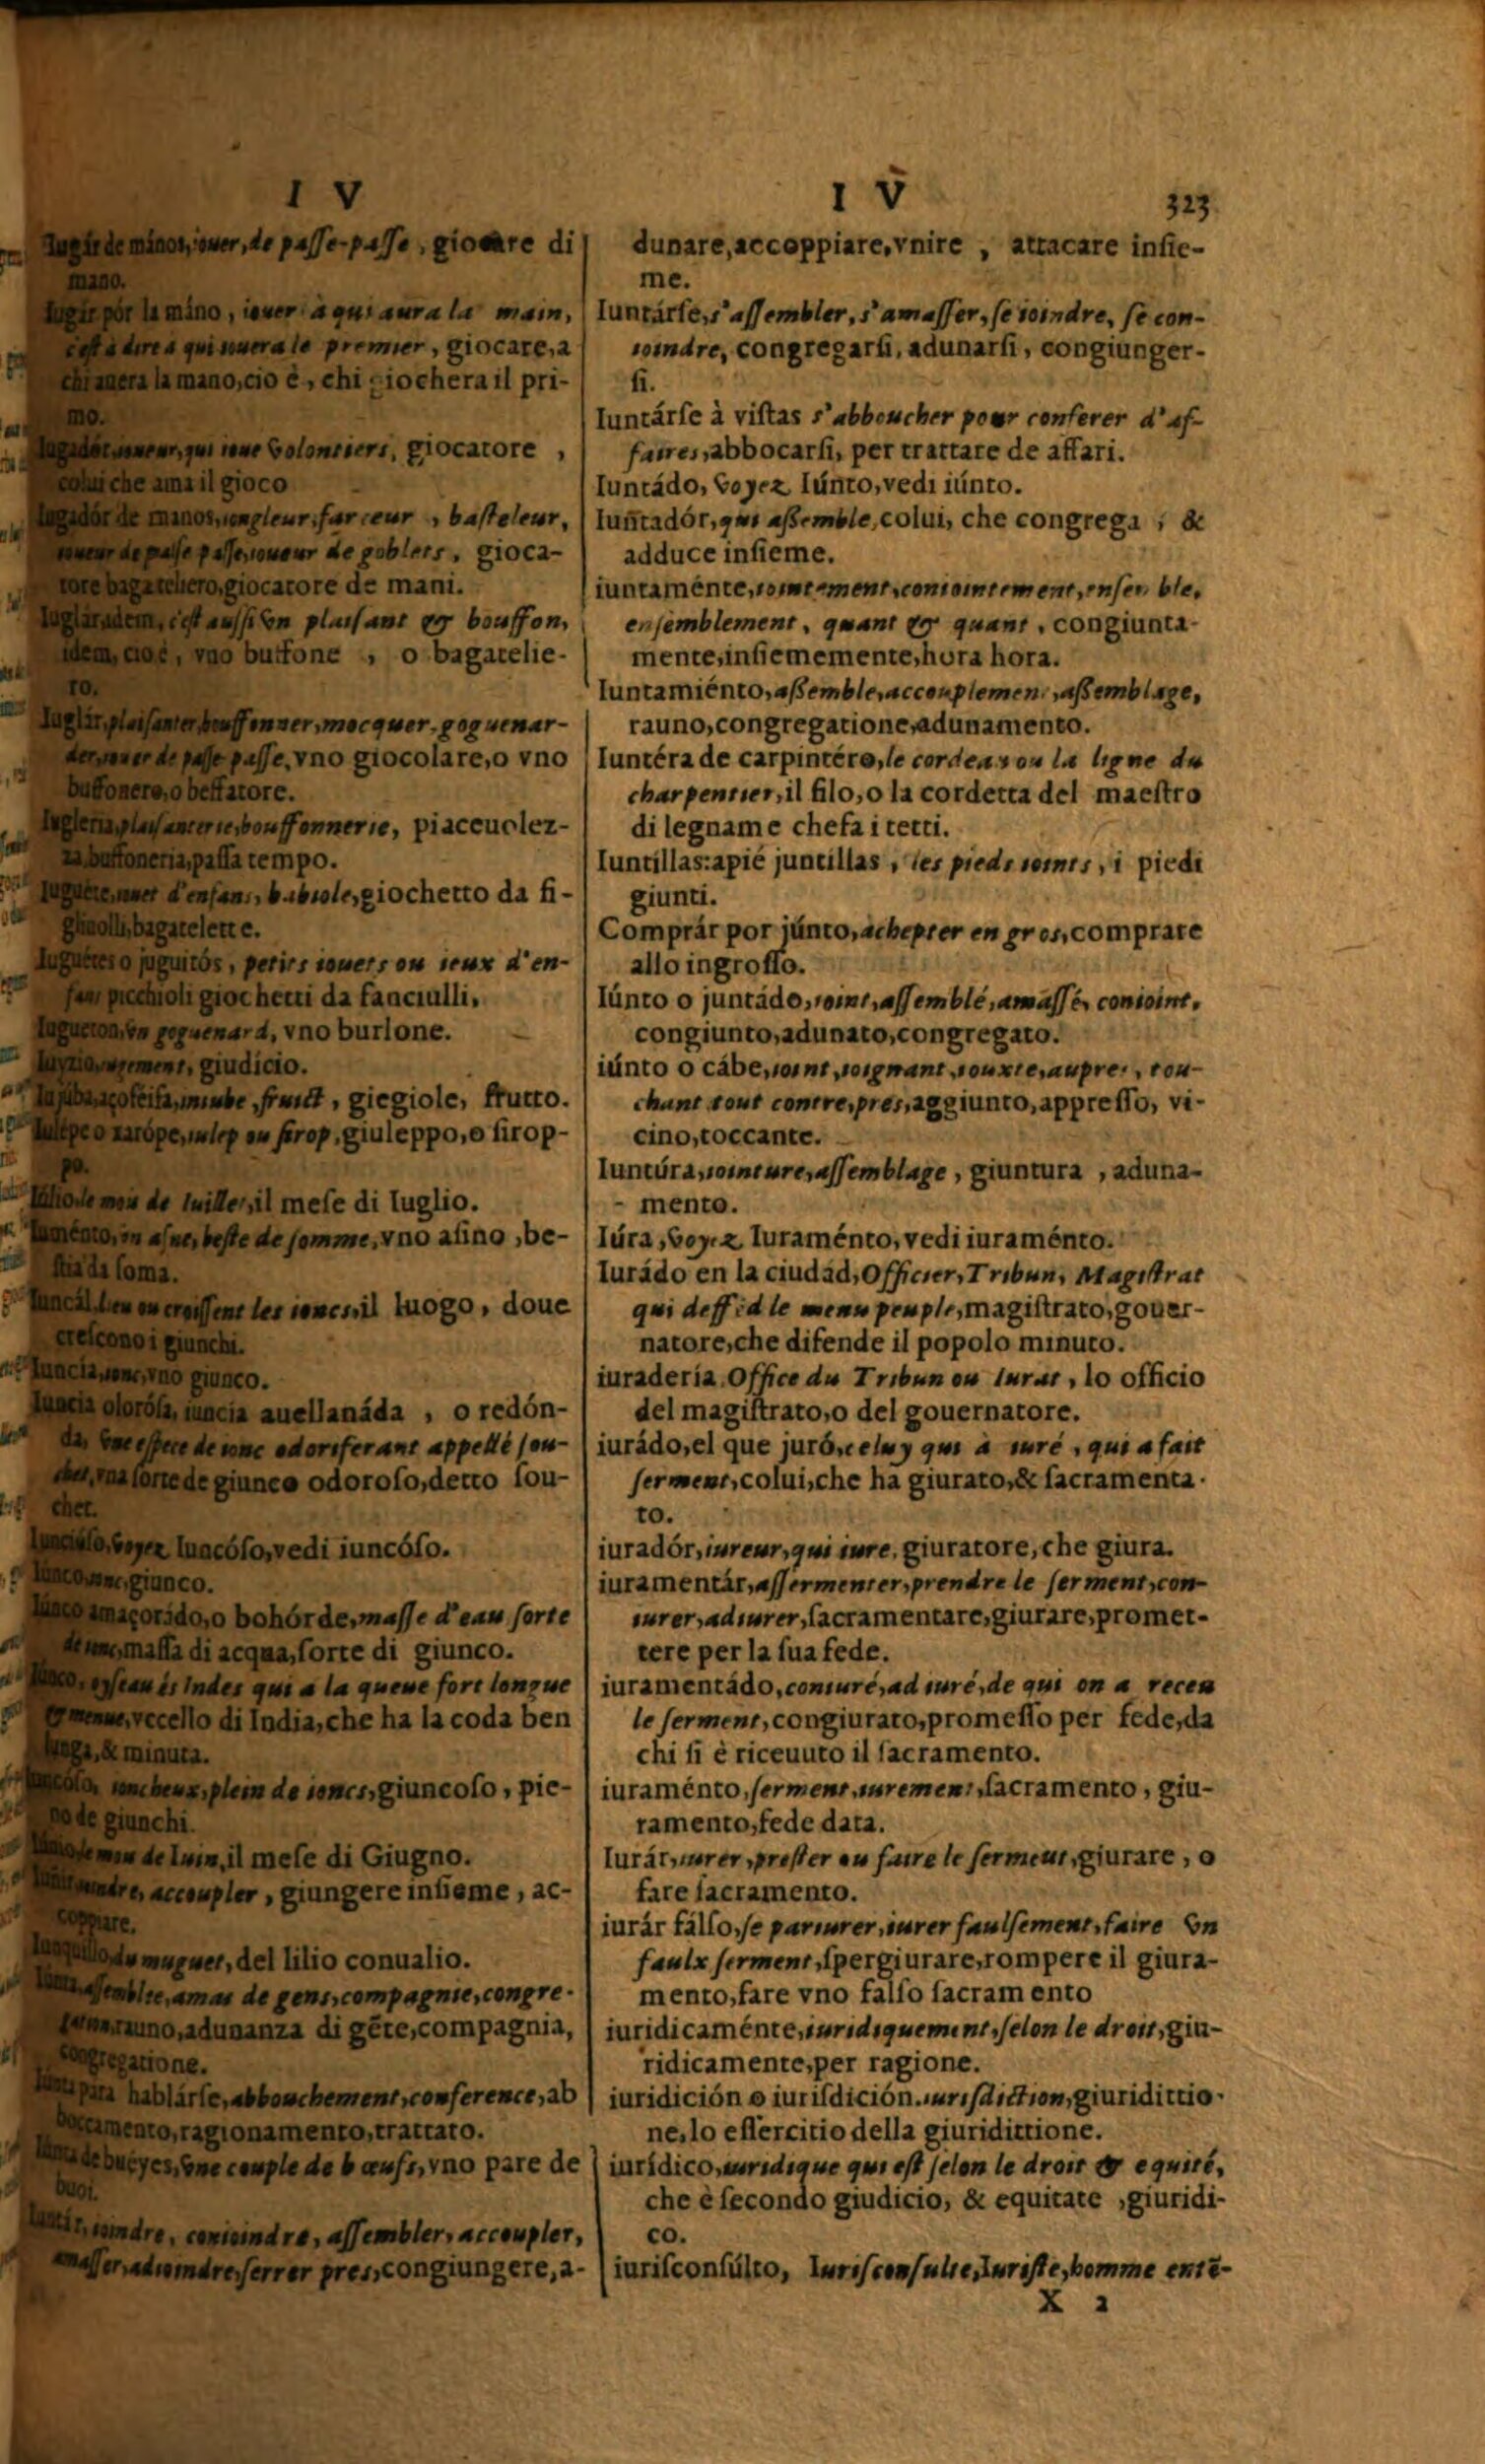 I V
Iugár de mános, iouer, de passe-passe, giocare di
mano.
Iugár pór la máno, iouer à qui aura la main,
c'est à dire à qui iouera le premier, giocare, a
chi auera la mano, cio è, chi giochera il pri-
mo.
Iugadór, ioueur, qui ioue volontiers, giocatore,
colui che ama il gioco
Iugadór de manos, iongleur, farceur, basteleur,
ioueur de passe passe, ioueur de goblets, gioca-
tore bagateliero, giocatore de mani.
Iuglár, idem, c'est aussi vn plaisant & bouffon,
idem, cio è, vno buffone, o bagatelie-
ro.
Iuglár, plaisanter, bouffonner, mocquer, goguenar-
der, iouer de passe passe, vno giocolare, o vno
buffonero, o beffatore.
Iugleria, plaisanterie, bouffonnerie, piaceuolez-
za, buffoneria, passa tempo.
Iuguéte, iouet d'enfans, babiole, giochetto da fi-
gliuolli, bagatelette.
Iuguétes o juguitós, petits iouets ou ieux d'en-
fans picchioli giochetti da fanciulli,
Iugueton, vn goguenard, vno burlone.
Iuyzio, iugement, giudicio.
Iujuba, açofeifa, iniube, fruict, giegiole, frutto.
Iulépe o xarópe, iulep ou sirop, giuleppo, o sirop-
po.
Iúlio, le mois de Iuillet, il mese di Iuglio.
Iuménto, vn asne, beste de somme, vno asino, be-
stia da soma.
Iuncál, lieu ou croissent les ioncs, il luogo, doue
crescono i giunchi.
Iuncia, ionc, vno giunco.
Iuncia olorósa, iuncia auellanáda, o redón-
da, vne espece de ionc odoriferant appellé sou-
chet, vna sorte de giunco odoroso, detto sou-
chet.
Voyez Iuncóso, vedi iuncóso.
Iúnco, ionc, giunco.
Iúnco amaçorádo, o bohórde, masse d'eau sorte
de ionc, massa di acqua, sorte di giunco.
Iúnco, oyseau és Indes qui a la queue fort longue
& menue, vccello di India, che ha la coda ben
longa, & minuta.
Iuncóso, ioncheux, plein de ioncs, giuncoso, pie-
no de giunchi.
Iúnio, le mois de Iuin, il mese di Giugno.
accoupler, giungere insieme, ac-
coppiare.
Iunquillo, du muguet, del lilio conualio.
Iúnta, assemblee, amas de gens, compagnie, congre-
gation, rauno, adunanza di gēte, compagnia,
congregatione.
Iúnta pára hablárse, abbouchement, conference, ab
boccamento, ragionamento, trattato.
Iúnta de buéyes, vne couple de bœufs, vno pare de
buoi.
Iuntár, ioindre, conioindre, assembler, accoupler,
amasser, adioindre, serrer pres, congiungere, a-
I V 323
dunare, accoppiare, vnire, attacare insie-
me.
Iuntárse, s'assembler, s'amasser, se ioindre, se con-
ioindre, congregarsi, adunarsi, congiunger-
si.
Iuntárse à vistas s'abboucher pour conferer d'af-
faires, abbocarsi, per trattare de affari.
Iuntádo, Voyez Iúnto, vedi iúnto.
Iuñtadór, qui assemble, colui, che congrega, &
adduce insieme.
iuntaménte, iointement, conioìntement, ensemble,
ensemblement, quant & quant, congiunta-
mente, insiememente, hora hora.
Iuntamiénto, assemble, accouplement, assemblage,
rauno, congregatione, adunamento.
Iuntéra de carpintéro, le cordeau ou la ligne du
charpentier, il filo, o la cordetta del maestro
di legname che fa i tetti.
Iuntíllas: a pié juntillas, les pieds ioints, i piedi
giunti.
Comprár por júnto, achepter en gros, comprare
allo ingrosso.
Iúnto o juntádo, ioint, assemblé, amassé, conioint,
congiunto, adunato, congregato.
iúnto o cábe, ioint, ioignant, iouxte, aupres, tou-
chant tout contre, pres, aggiunto, appresso, vi-
cino, toccante.
Iuntúra, iointure, assemblage, giuntura, aduna-
mento.
Iúra, Voyez Iuraménto, vedi iuraménto.
Iurádo en la ciudád, Officier, Tribun, Magistrat
qui deffēd le menu peuple, magistrato, gouer-
natore, che difende il popolo minuto.
iuradería, Office du Tribun ou Iurat, lo officio
del magistrato, o del gouernatore.
iurádo, el que juró, celuy qui à iuré, qui a fait
serment, colui, che ha giurato, & sacramenta-
to.
iuradór, iureur, qui iure, giuratore, che giura.
iuramentár, assermenter, prendre le serment, con-
iurer, adiurer, sacramentare, giurare, promet-
tere per la sua fede.
iuramentádo, coniuré, adiuré, de qui on a receu
le serment, congiurato, promesso per fede, da
chi si è riceuuto il sacramento.
iuraménto, serment, iurement, sacramento, giu-
ramento, fede data.
Iurár, iurer, prester ou faire le serment, giurare, o
fare sacramento.
iurár fálso, se pariurer, iurer faulsement, faire vn
faulx serment, spergiurare, rompere il giura-
mento, fare vno falso sacramento
iuridicaménte, iuridiquement, selon le droit, giu-
ridicamente, per ragione.
iuridición o iurisdición, iurisdiction, giuridittio-
ne, lo essercitio della giuridittione.
iurídico, iuridique qui est selon le droit & equité,
che è secondo giudicio, & equitate, giuridi-
co.
iurisconsúlto, Iurisconsulte, Iuriste, homme entē-
X 2